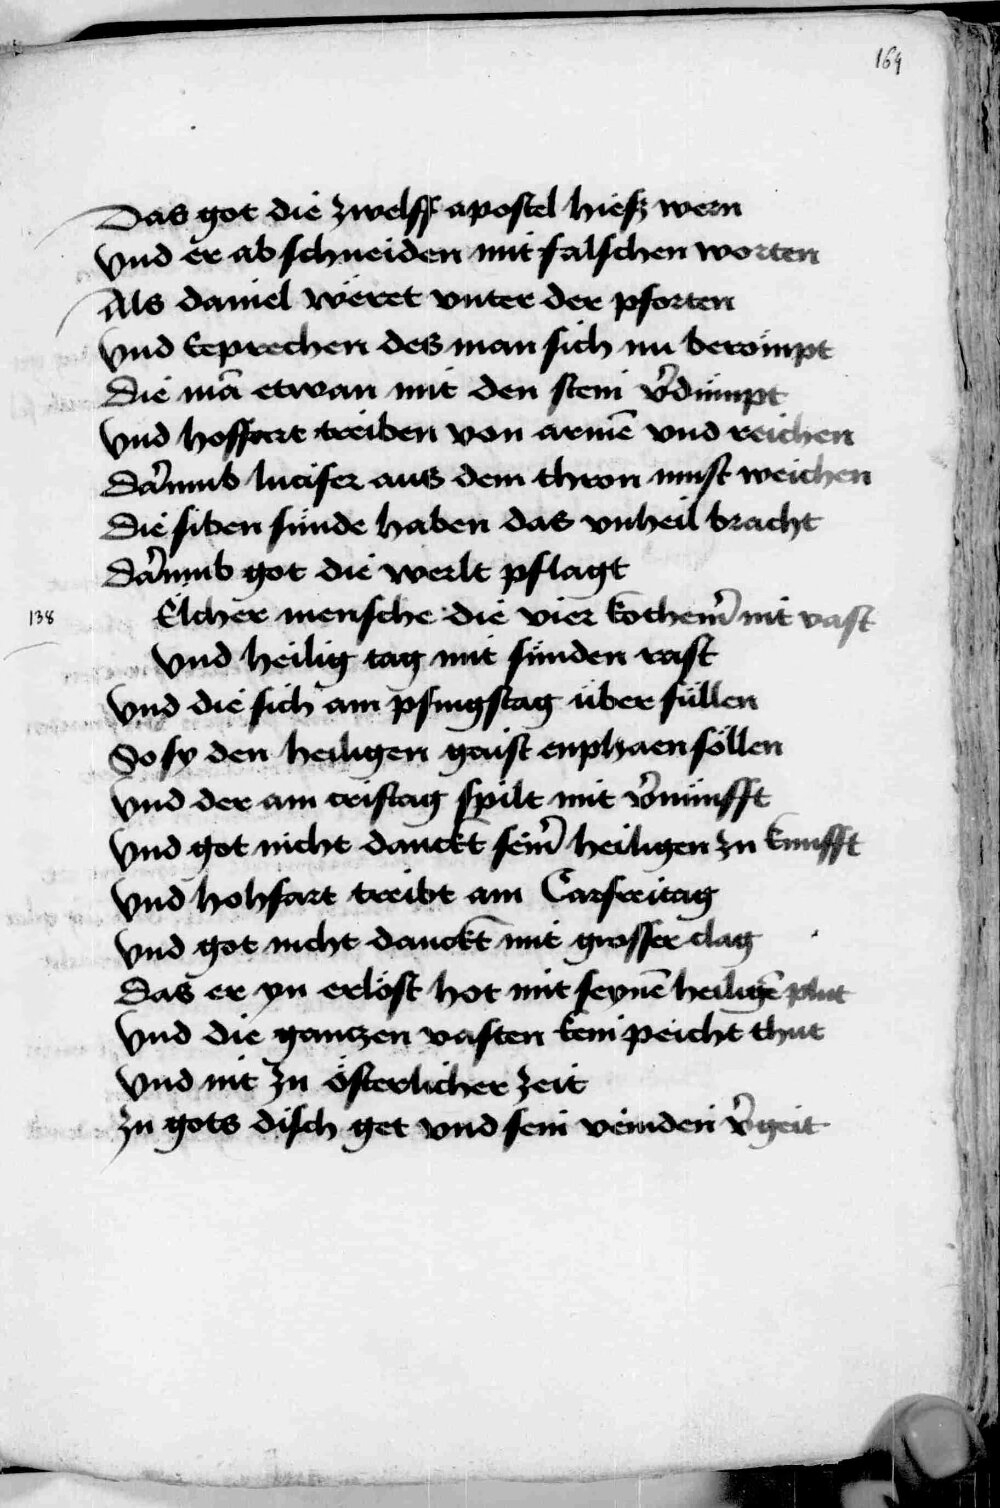 164
Das got die zwelff apostel hiesz wern
Vnd er ab schneiden mit falschen worten
Als daniel weret vnter der pforten
Vnd eeprechen des man sich nu berömpt
Die mā etwan mit den stein v̉dümpt
Vnd hoffart treiben von armē vnd reichen
Dar̉umb lucifer aus dem thron must weichen
Die siben sünde haben das vnheil bracht
Dar̉umb got die werlt pflagt
138
Elcher mensche die vier kothem̉ nit vast
Vnd heilig tag mit sünden rast
Vnd die sich am pfingstag über füllen
So sy den heiligen geist enphaen söllen
Vnd der am cristag spilt mit v̉nünfft
Vnd got nicht danckt seim̉ heiligen zu kunfft
Vnd hohfart treibt am Carfreitag
Vnd got nicht danckt mit grosser clag
Das er yn erlöst hot mit seynē heiligē plut
Vnd die gantzen vasten kein peicht thut
Vnd nit zu österlicher zeit
Zu gots disch get vnd sein veinden v̉geit